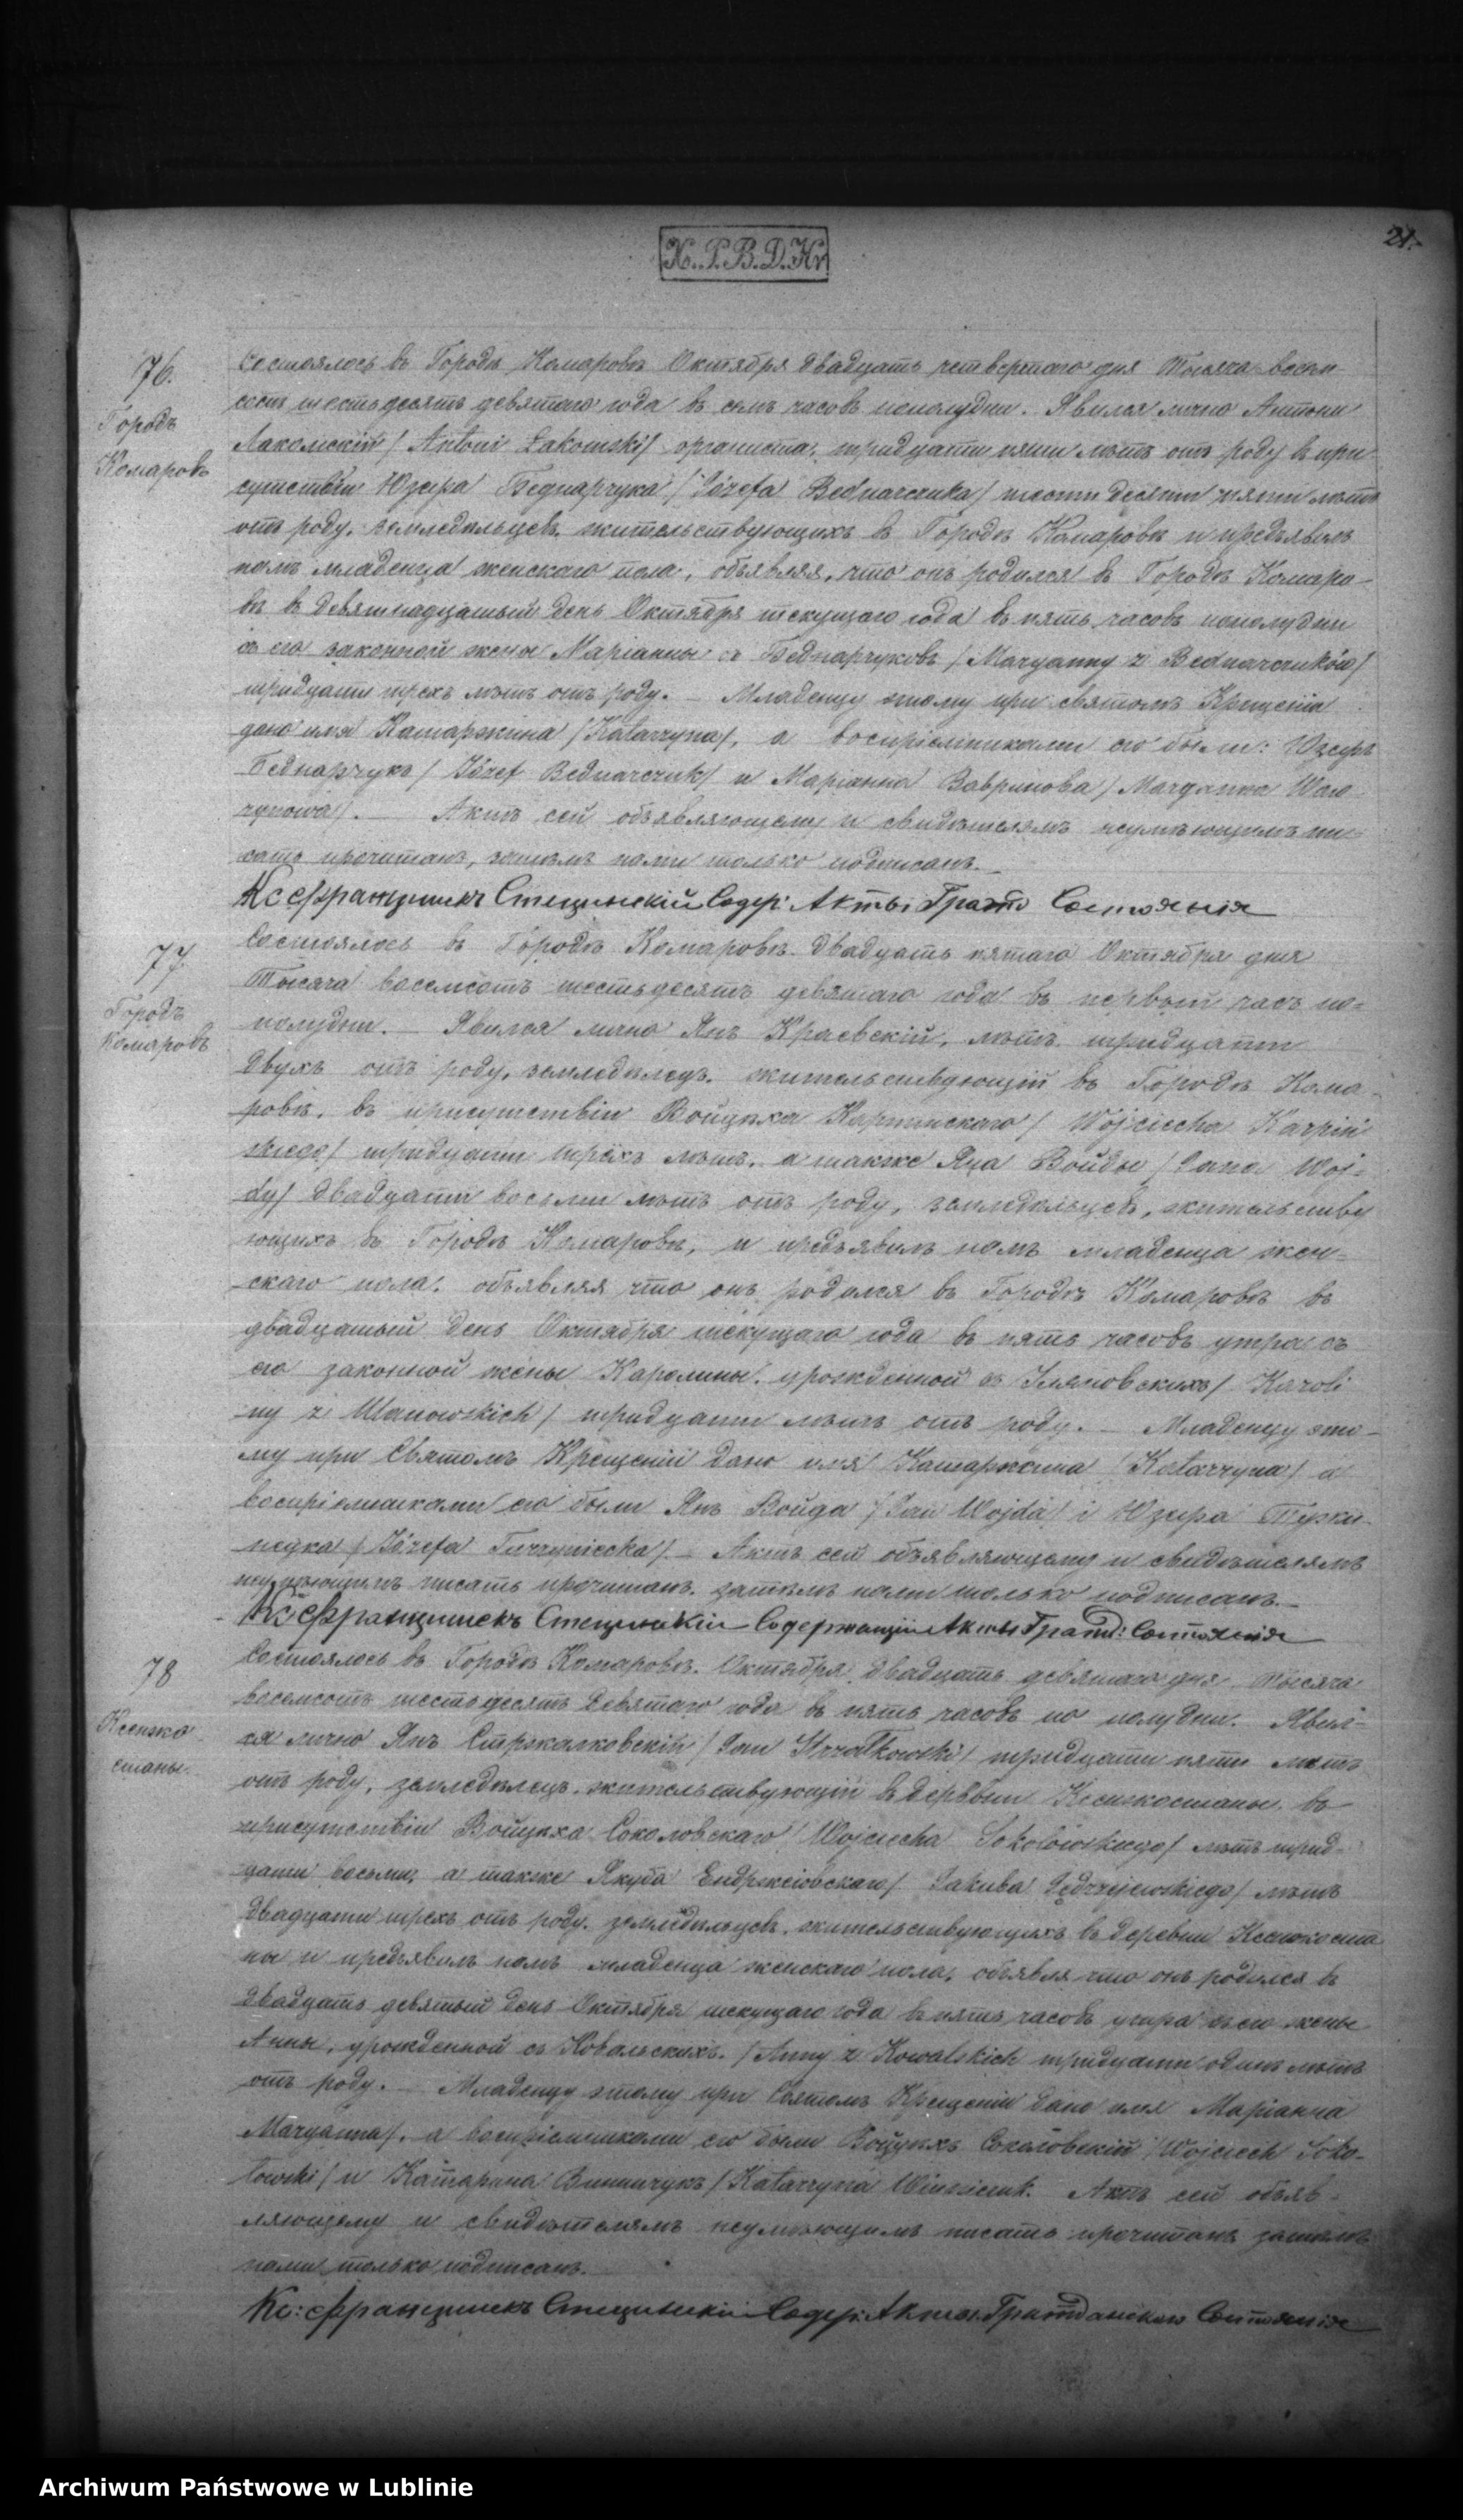 K.P.B.D.Kr
21.
76.
Городъ
Комаровъ
Состоялось въ Городѣ Комаровѣ Октября двадцать четвертаго дня Тысяча восем-
сотъ шестьдесятъ девятаго года въ семь часовъ пополудни. Явился лично Антони
Лакомскій / Antoni Łakomski / органиста, тридцати пяти лѣтъ отъ роду въ при
сутствіи Юзефа Беднарчука / Józefa Bednarczuka / шести десяти пяти лѣтъ
отъ роду, земледѣльцевъ, жительствующихъ въ Городѣ Комаровѣ и предъявилъ
намъ младенца женскаго пола, объявляя, что онъ родился въ Городѣ Комаро-
вѣ въ девятнадцатый день Октября текущаго года въ пять часовъ пополудни
съ его законной жены Маріанны съ Беднарчуковъ / Maryanny z Bednarczuków /
тридцати трехъ лѣтъ отъ роду. — Младенцу этому при святомъ Крещеніи
дано имя Катаржина / Katarzyna /, а воспріемниками его были: Юзефъ
Беднарчукъ / Józef Bednarczuk / и Маріанна / Maryanna Waw-
/. — Актъ сей объявляющему и свидѣтелямъ неумѣющимъ пи-
сать прочитанъ, затѣмъ нами только подписанъ. —
Кс Францишекъ Содер: Акты Граж Состоянія
77.
Городъ
Комаровъ
Состоялось въ Городѣ Комаровѣ двадцать пятаго Октября дня
Тысяча восемсотъ шестьдесятъ девятаго года въ первый часъ по-
полудни. — Явился лично Янъ Краевскій, лѣтъ тридцати
двухъ отъ роду, земледѣлецъ, жительствующій въ Городѣ Кома-
ровѣ, въ присутствіи Войцѣха Карпинскаго / Wójciecha Karpiń
skiego / тридцати трёхъ лѣтъ, а также Яна Войды / Jana Woj-
dy / двадцати восьми лѣтъ отъ роду, земледѣльцевъ, жительству
ющихъ въ Городѣ Комаровѣ, и предъявилъ намъ младенца жен-
скаго пола, объявляя что онъ родился въ Городѣ Комаровѣ въ
двадцатый день Октября текущаго года въ пять часовъ утра съ
его законной жены Каролины, урожденной съ / Karoli
ny z / тридцати лѣтъ отъ роду. — Младенцу это-
му при Святомъ Крещеніи дано имя Катаржина / Katarzyna / а
воспріемниками его были Янъ Войда / Jan Wojda / i Юзефа
/ Józefa / — Актъ сей объявляющему и свидѣтелямъ
неумѣющимъ писать прочитанъ, затѣмъ нами только подписанъ. —
Кс Францишекъ Содержащій Акты Гражд: Состоянія
78
Ксенжо
станы.
Состоялось въ Городѣ Комаровѣ, Октября двадцать девятаго дня, Тысяча
восемсотъ шестьдесятъ девятаго года въ пять часовъ по полудни. Явил-
ся лично Янъ Стржалковскій / Jan Strzałkowski / тридцати пяти лѣтъ
отъ роду, земледѣлецъ, жительствующій въ деревни Ксенжостаны, въ
присутствіи Войцѣха Соколовскаго / Wojciecha Sokołowskiego / лѣтъ трид-
цати восьми, а также Якуба Ендржеіовскаго / Jakuba Jędrzyjewskiego / лѣтъ
двадцати трехъ отъ роду, земледѣльцевъ, жительствующихъ въ деревни Ксенжоста
ны и предъявилъ намъ младенца женскаго пола, объявля что онъ родился въ
двадцать девятый день Октября текущаго года въ пять часовъ утра съ его жены
Анны, урожденной съ Ковальскихъ. / Anny z Kowalskich тридцати одинъ лѣтъ
отъ роду. — Младенцу этому при Святомъ Крещеніи дано имя Маріанна
Maryanna /, а воспріемниками его были Войцѣхъ Соколовскій / Wojciech Soko-
łowski / и Катарина / Katarzyna Актъ сей объяв-
ляющему и свидѣтелямъ неумѣющимъ писать прочитанъ затѣмъ
нами только подписанъ.
Кс: Францишекъ Содер: Акты Гражданскаго Состоянія
Archiwum Państwowe w Lublinie